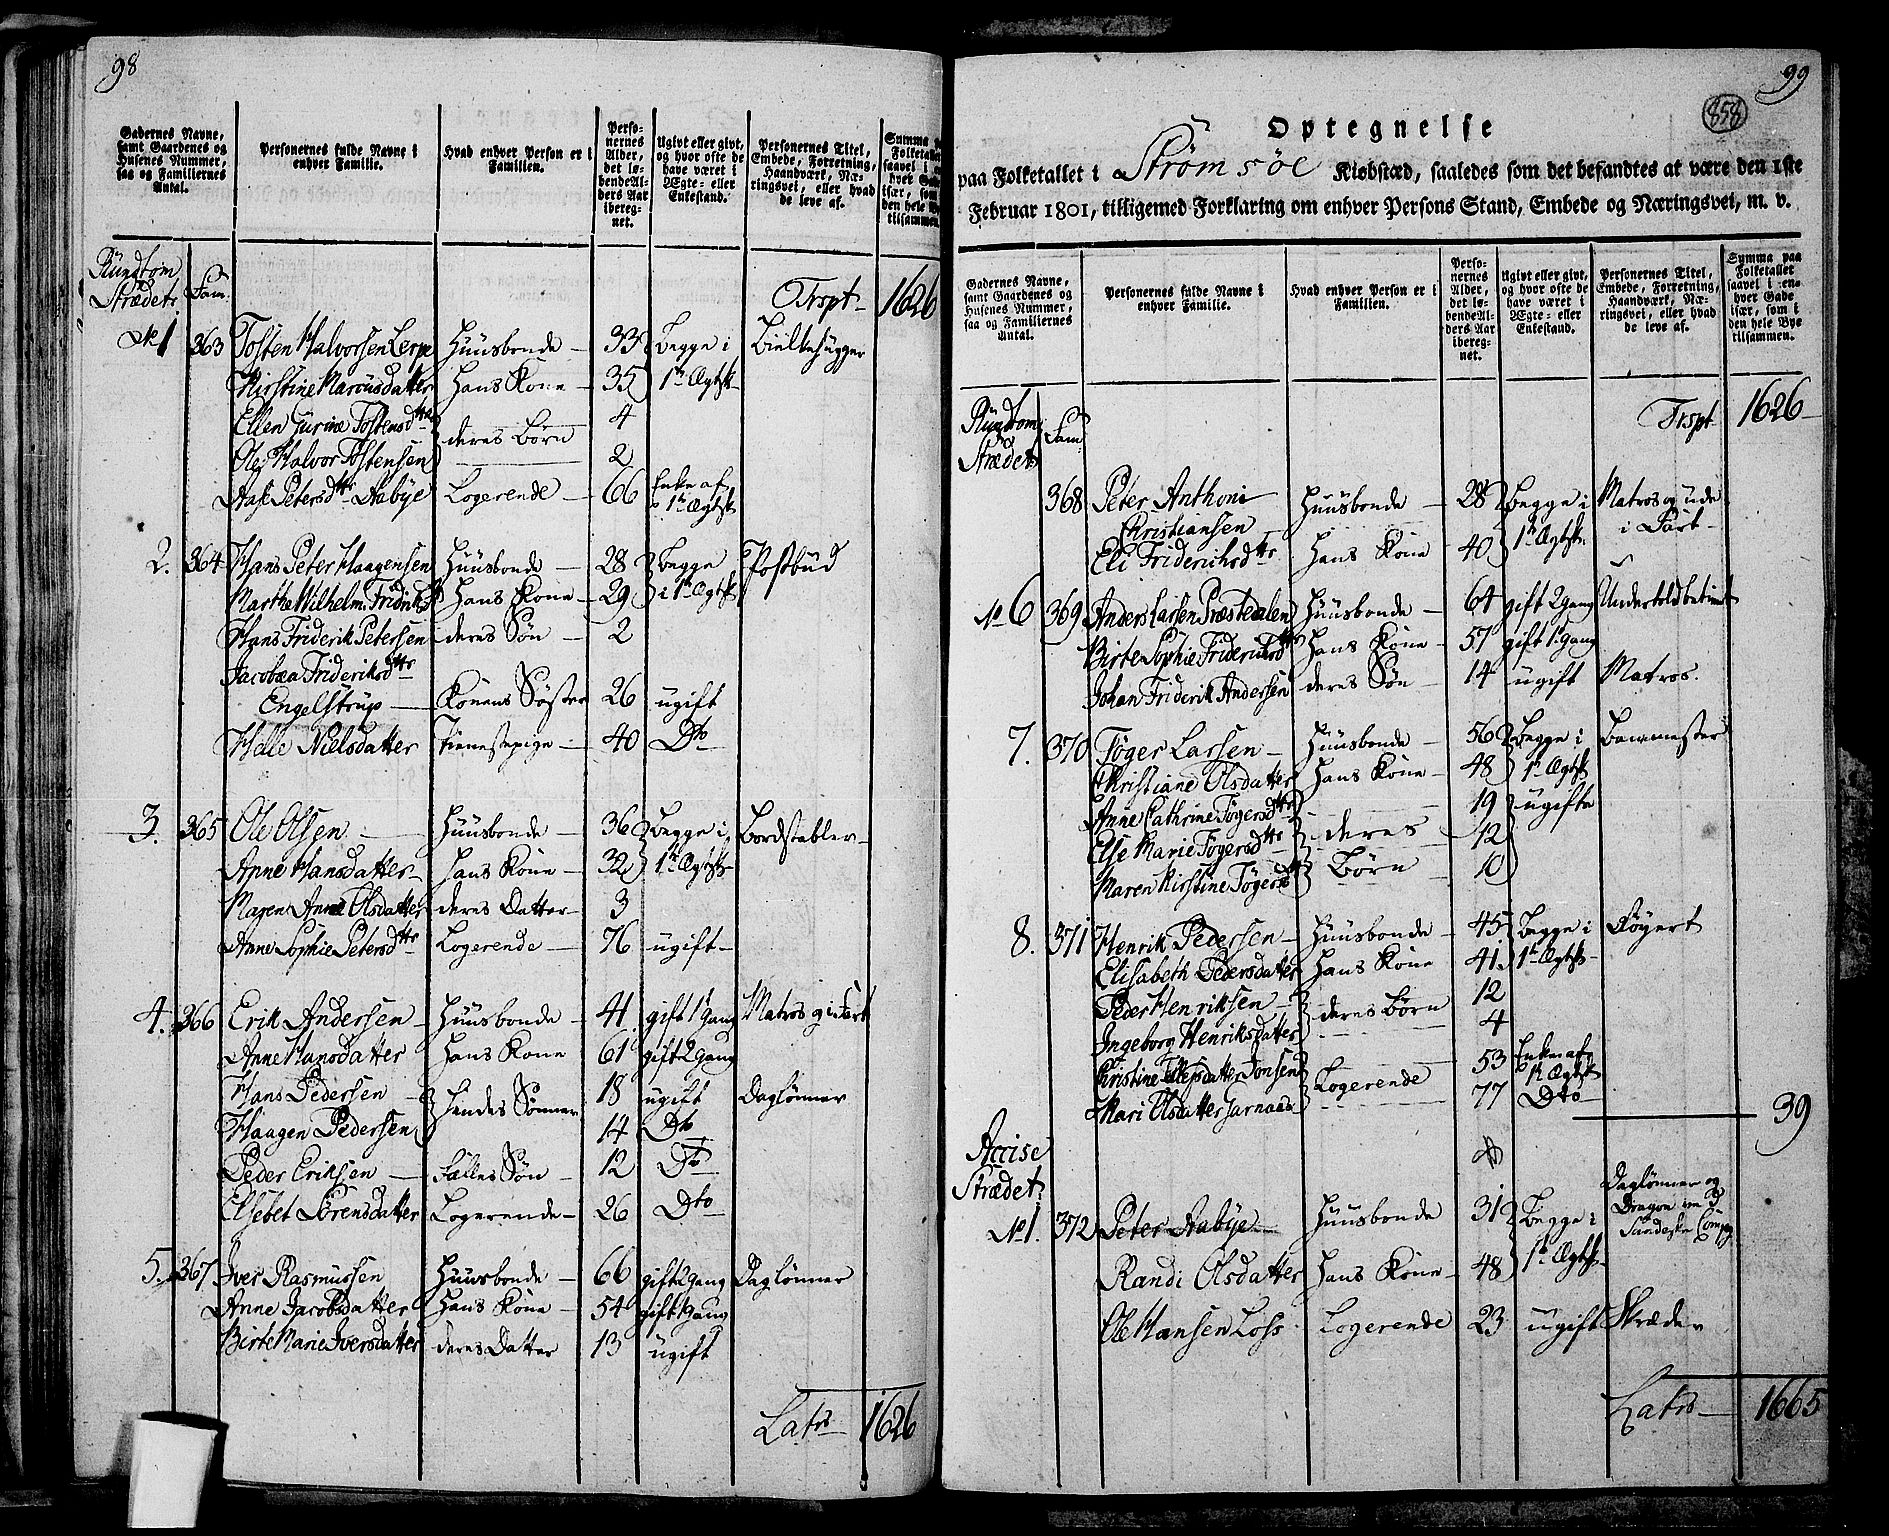 98
Gadernes Navne, samt Gaardenes og Husenes Nummer, saa og Familiernes Antal.
Personernes fulde Navne i enhver Familie.
Hvad enhver Person er i Familien.
Personernes Alder, det løbende Alders Aar iberegnet.
Ugivt eller givt, og hvor ofte de have været i Ægte- eller Enkestand.
Personernes Titel, Embede, Forretning, Haandværk, Næringsvei, eller hvad de leve af.
Summa paa Folketallet
Rundtom
Strædet. Fam. Trspt 1626
No 1 363 Tosten Halvorsen Huusbonde 33 Begge i Bielkehugger
Kirstine Marcusdatter Hans Kone 35 1te Ægtsk
Ellen Gurine Tostensdtr 4
deres Børn
Ole Halvor Tostensen 2
Aase Petersdtr Aabye Logerende 66 Enke af 1te Ægtsk
2. 364 Hans Peter Haagensen Huusbonde 28 Begge Postbud
Marthe Wilhelm. Fridriksd Hans Kone 29 i 1te Ægtsk
Hans Friderik Petersen deres Søn 2
Jacobæa Frideriksdtr
Engelstrup Konens Søster 26 ugift
Helle Nielsdatter Tienestepige 40 Dto
3. 365 Ole Olsen Huusbonde 36 Begge i Bordstabler
Anne Hansdatter Hans Kone 32 1te Ægtsk
Maren Anne Olsdatter deres Datter 3
Anne Sophie Petersdtr Logerende 76 ugift
4. 366 Erik Andersen Huusbonde 41 gift 1 Gang Matros og i Fart
Anne Hansdatter Hans Kone 61 gift 2 Gang
Hans Pedersen 18 ugift Daglönner
hendes Sönner
Haagen Pedersen 14 Dto
Peder Eriksen Fælles Søn 12 Do
Elsebet Sörensdatter Logerende 26 Dto
5. 367 Iver Rasmussen Huusbonde 66 gift 2 Gang Daglönner
Anne Jacobsdatter Hans Kone 54 gift 1 Gang
Birte Marie Iversdatter deres Datter 13 ugift
Latrs 1626
99
858
Optegnelse
paa Folketallet i Strømsöe Kiøbstæd, saaledes som det befandtes at være den 1ste
Februar 1801, tilligemed Forklaring om enhver Persons Stand, Embede og Næringsvei, m. v.
Gadernes Navne, samt Gaardenes og Husenes Nummer, saa og Familiernes Antal.
Personernes fulde Navne i enhver Familie.
Hvad enhver Person er i Familien.
Personernes Alder, det løbende Alders Aar iberegnet.
Ugivt eller givt, og hvor ofte de have været i Ægte- eller Enkestand.
Personernes Titel, Embede, Forretning, Haandværk, Næringsvei, eller hvad de leve af.
Summa paa Folketallet saavel i enhver Gade især, som i den hele Bye tilsammen.
Rundtom
Strædet Fam Trspt 1626
368 Peter Anthoni Huusbonde 28 Begge i Matros og ude
Christiansen 1te Ægtsk. i Fart
Eli Friderichsdtr Hans Kone 40
No 6 369 Anders Larsen Præstedalen Huusbonde 64 gift 2 Gang Undertoldbetient
Birte Sophie Friderichsdtr Hans Kone 57 gift 1 Gang
Johan Friderik Andersen deres Søn 14 ugift Matros.
7. 370 Töger Larsen Huusbonde 56 Begge i
Christiane Olsdatter Hans Kone 48 1te Ægtsk
Anne Cathrine Tögersdtr 19 ugifte
Else Marie Tögersdtr deres 12
Maren Kirstine Tögersdtr Børn 10
8. 371 Henrik Pedersen Huusbonde 45 Begge i Röyert
Elisabeth Pedersdatter Hans Kone 41 1te Ægtsk
Peder Henriksen 12
deres Børn
Ingeborg Henriksdatter 4
Christine Ellefsdatter Jonsen 53 Enke af 1te Ægtsk
Logerende
Mari Olsdatter 77 Dto
39
Accise
Strædet.
No 1. 372 Peter Aabye Huusbonde 31 Begge i Daglönner og Dragon
Randi Olsdatter Hans Kone 48 1te Ægtsk
Ole Hansen Loss Logerende 23 ugift Skræder
Latrs 1665